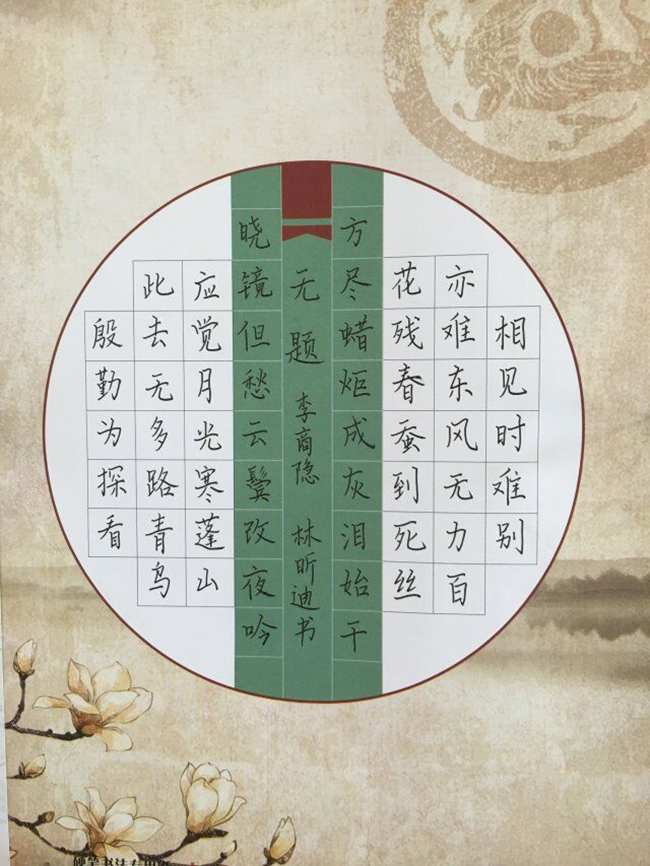 相见时难别
亦难东风无力百
花残春蚕到死丝
方尽蜡炬成灰泪始干
无题 李商隐 林昕迪书
晓镜但愁云鬓改夜吟
应觉月光寒蓬山
此去无多路青鸟
殷勤为探看